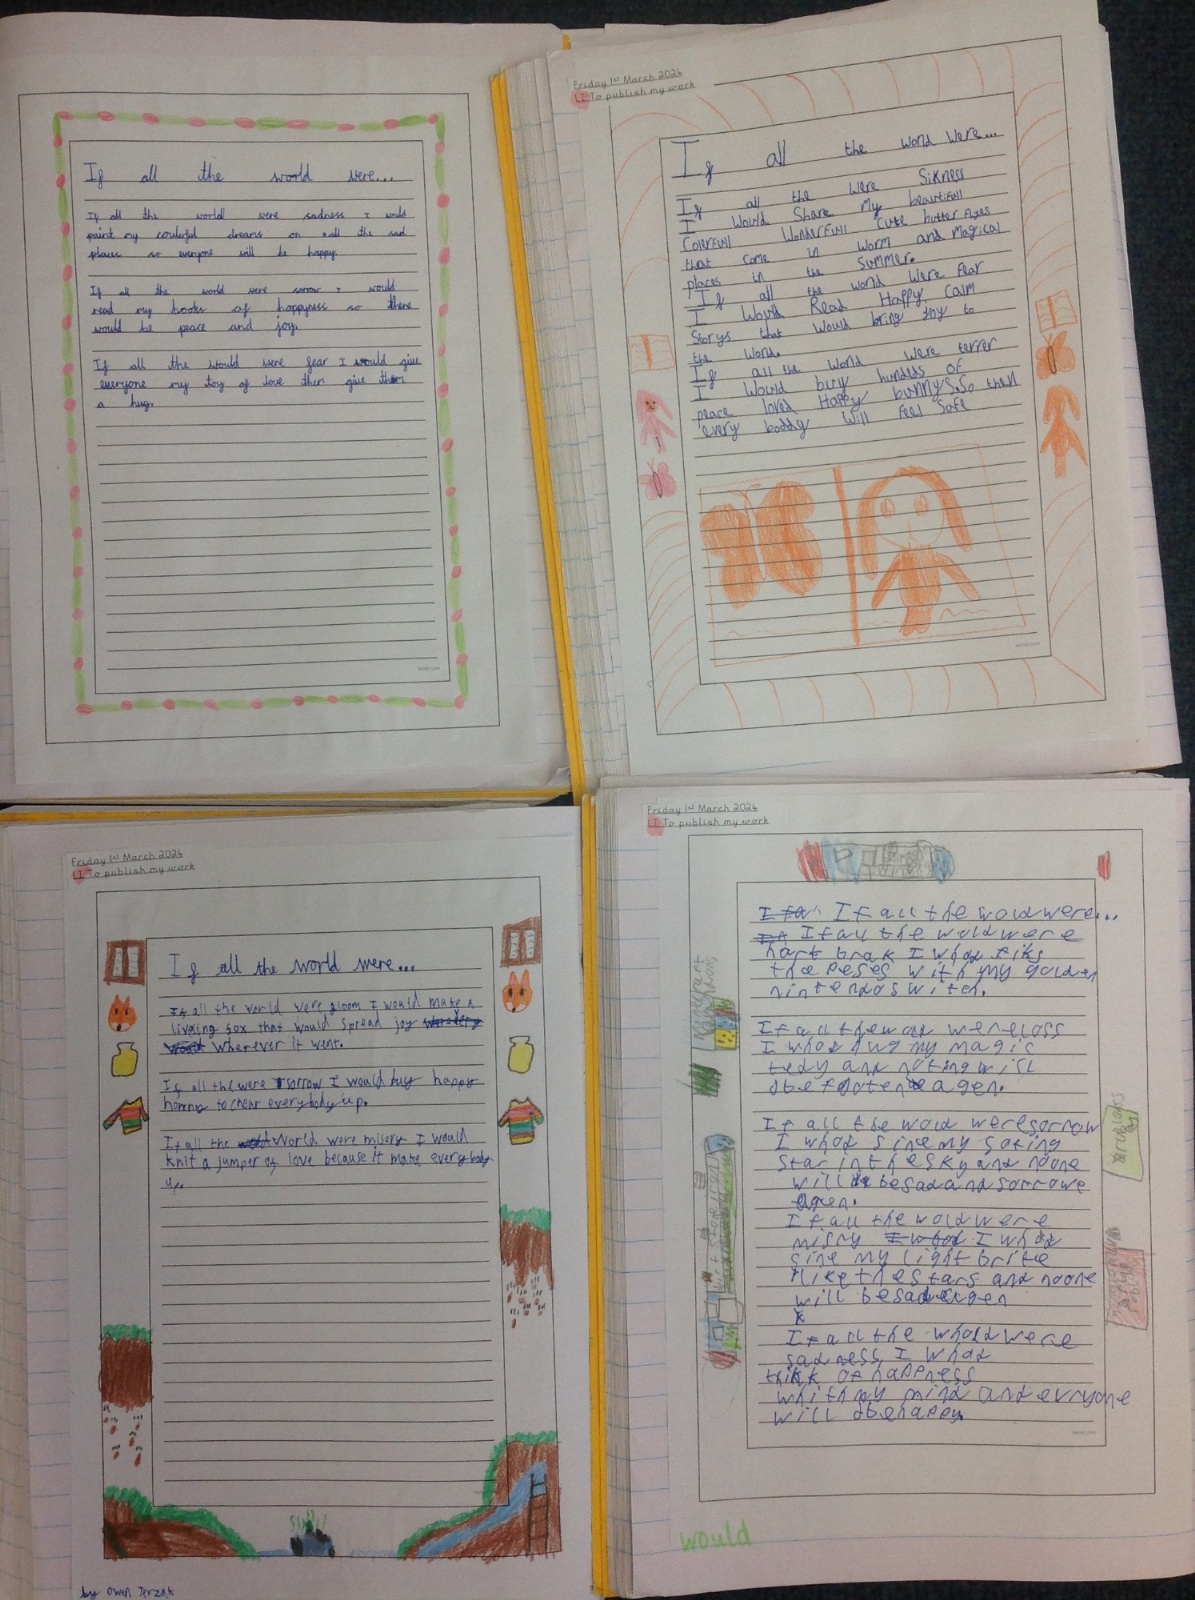 If all the world were...
If all the world were sadness I would
paint my coulerful dreams on all the sad
places so everyone will be happy.
If all the world were sorrow I would
read my books of happyness so there
would be peace and joy.
If all the would were fear I would give
everyone my toy of love then give them
a hug.
Friday 1st March 2024
LI To publish my work
If all the world were...
If all the were Sikness
I Would Share My beautifull
Colerfull WonderFull Cute butterflyes
that come in worm and Magical
places in the Summer.
If all the world were fear
I Would Read Happy Calm
Storys that Would bring Joy to
the World.
If all the World were terrer
I Would buy hundeds of
peace loved Happy bunnys.So than
every boddy Will feel Safe
Friday 1st March 2024
LI To publish my work
If all the world were...
If all the world were gloom I would make a
livging fox that would spread joy
wherever it went.
If all the were sorrow I would buy happy
honny to chear everybody up.
If all the World were misery I would
knit a jumper of love because it make everybody
up.
by Owen Terzak
Friday 1st March 2024
LI To publish my work
If all the wold were...
If all the wold were
hart brak I whod fiks
the peses with my golden
nintendo switch.
If all the wold were loss
I whod hug my magic
tedy and noting will
be foten agen.
If all the wold were sorrow
I whod sine my
star in the sky and noone
will be sad and sorrowe
agen.
If all the wold were
misry I whod
sine my light brite
like the stars and noone
will be sad agen
If all the whold were
sadness I whod
think of happness
whith my mind and everyone
will be happy.
would